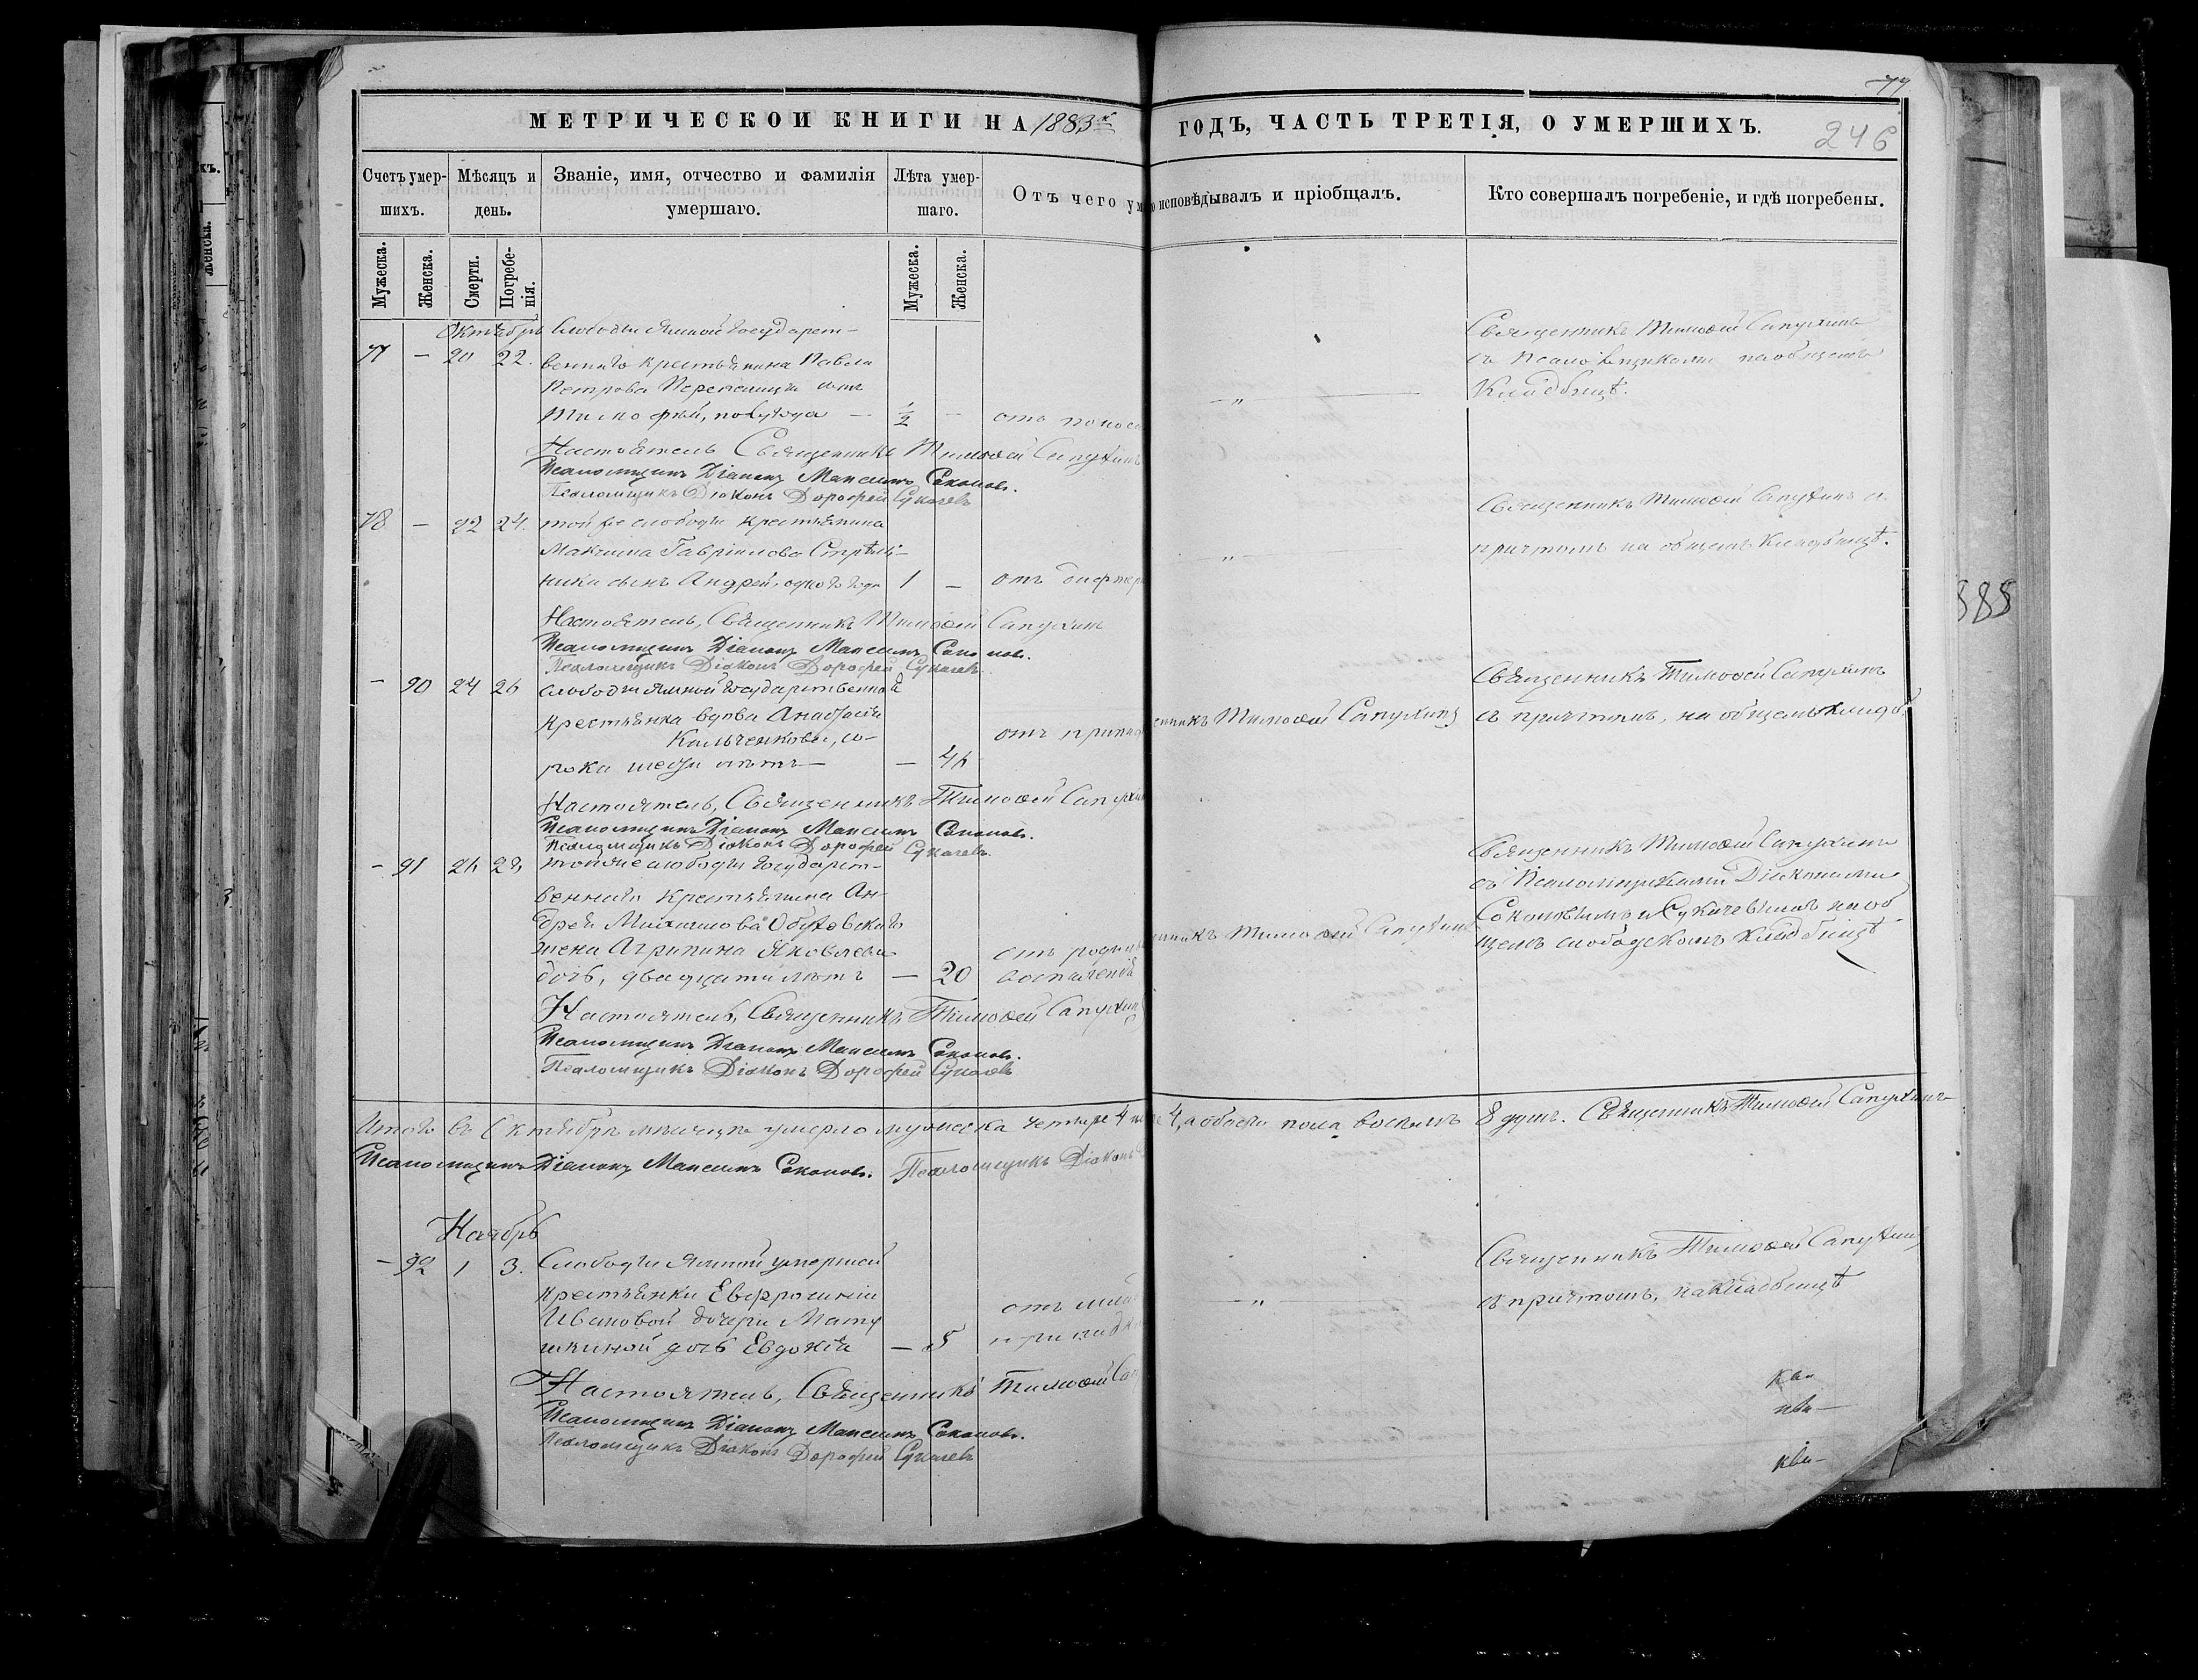 77
МЕТРИЧЕСКОЙ КНИГИ НА 1883 ГОДЪ, ЧАСТЬ ТРЕТІЯ, О УМЕРШИХЪ.
246
Счетъ умершихъ.
Мѣсяцъ и день.
Званіе, имя, отчество и фамилія умершаго.
Лѣта умершаго.
Отъ чего ум
исповѣдывалъ и пріобщалъ.
Кто совершалъ погребеніе, и гдѣ погребены.
Мужеска.
Женска.
Смерти.
Погребенія.
Мужеска.
Женска.
Октябрь
77 — 20 22.
Слободы Ямной Государст-
веннаго крестьянина Павла
Петрова сынъ
Тимофей, полугода — 1/2 —
отъ поноса
— „ —
Священникъ Тимоѳей Сапухинъ
съ Псаломщиками на общемъ
Кладбищѣ.
Настоятель Священникъ Тимоѳей Сапухинъ
Псаломщикъ Діаконъ Максимъ Соколовъ.
Псаломщикъ Діаконъ Дорофей Сукачевъ
78 — 22 24.
той же слободы крестьянина
Максима Гавріилова Стрѣль-
ника сынъ Андрей, одного года 1 —
отъ дифтер
— „ —
Священникъ Тимоѳей Сапухинъ съ
причтомъ на общемъ Кладбищѣ.
Настоятель, Священникъ Тимоѳей Сапухинъ
Псаломщикъ Діаконъ Максимъ Соколовъ.
Псаломщикъ Діаконъ Дорофей Сукачевъ.
— 90 24 26
слободы Ямной Государственной
крестьянка вдова Анастасія
Кольченкова, со-
рока шести лѣтъ — — 46
отъ припад
енникъ Тимоѳей Сапухинъ
Священникъ Тимоѳей Сапухинъ
съ причтомъ, на общемъ кладб.
Настоятель, Священникъ Тимоѳей Сапухин
Псаломщикъ Діаконъ Максимъ Соколовъ.
Псаломщикъ Діаконъ Дорофей Сукачевъ.
— 91 26 28
той же слободы Государст-
веннаго крестьянина Ан-
дрея Михаилова Обуховскаго
жена Агрипина Яковлева
дочь, двадцати лѣтъ — 20
отъ родит
воспаленія
енникъ Тимоѳей Сапухинъ
Священникъ Тимоѳей Сапухинъ
съ Псаломщиками Діаконами
Соколовымъ и Сукачевымъ на об
щемъ слободскомъ кладбищѣ
Настоятель, Священникъ Тимоѳей Сапухинъ
Псаломщикъ Діаконъ Максимъ Соколовъ.
Псаломщикъ Діаконъ Дорофей Сукачевъ
Итого въ Октябрѣ мѣсяцѣ умерло мужеска четыре 4 4, а обоего пола восемь 8 душъ. Священникъ Тимоѳей Сапухинъ
Псаломщикъ Діаконъ Максимъ Соколовъ. Псаломщикъ Діаконъ
Ноябрь
— 92 1 3.
Слободы Ямной умершей
крестьянки Евфросиніи
Ивановой дочери Мату
шкиной дочь Евдокія — 5
отъ
припадк
— „ —
Священникъ Тимоѳей Сапухинъ
съ причтомъ, на кладбищѣ
Настоятель, Священникъ Тимоѳей Сап
Псаломщикъ Діаконъ Максимъ Соколовъ.
Псаломщикъ Діаконъ Дорофей Сукачевъ